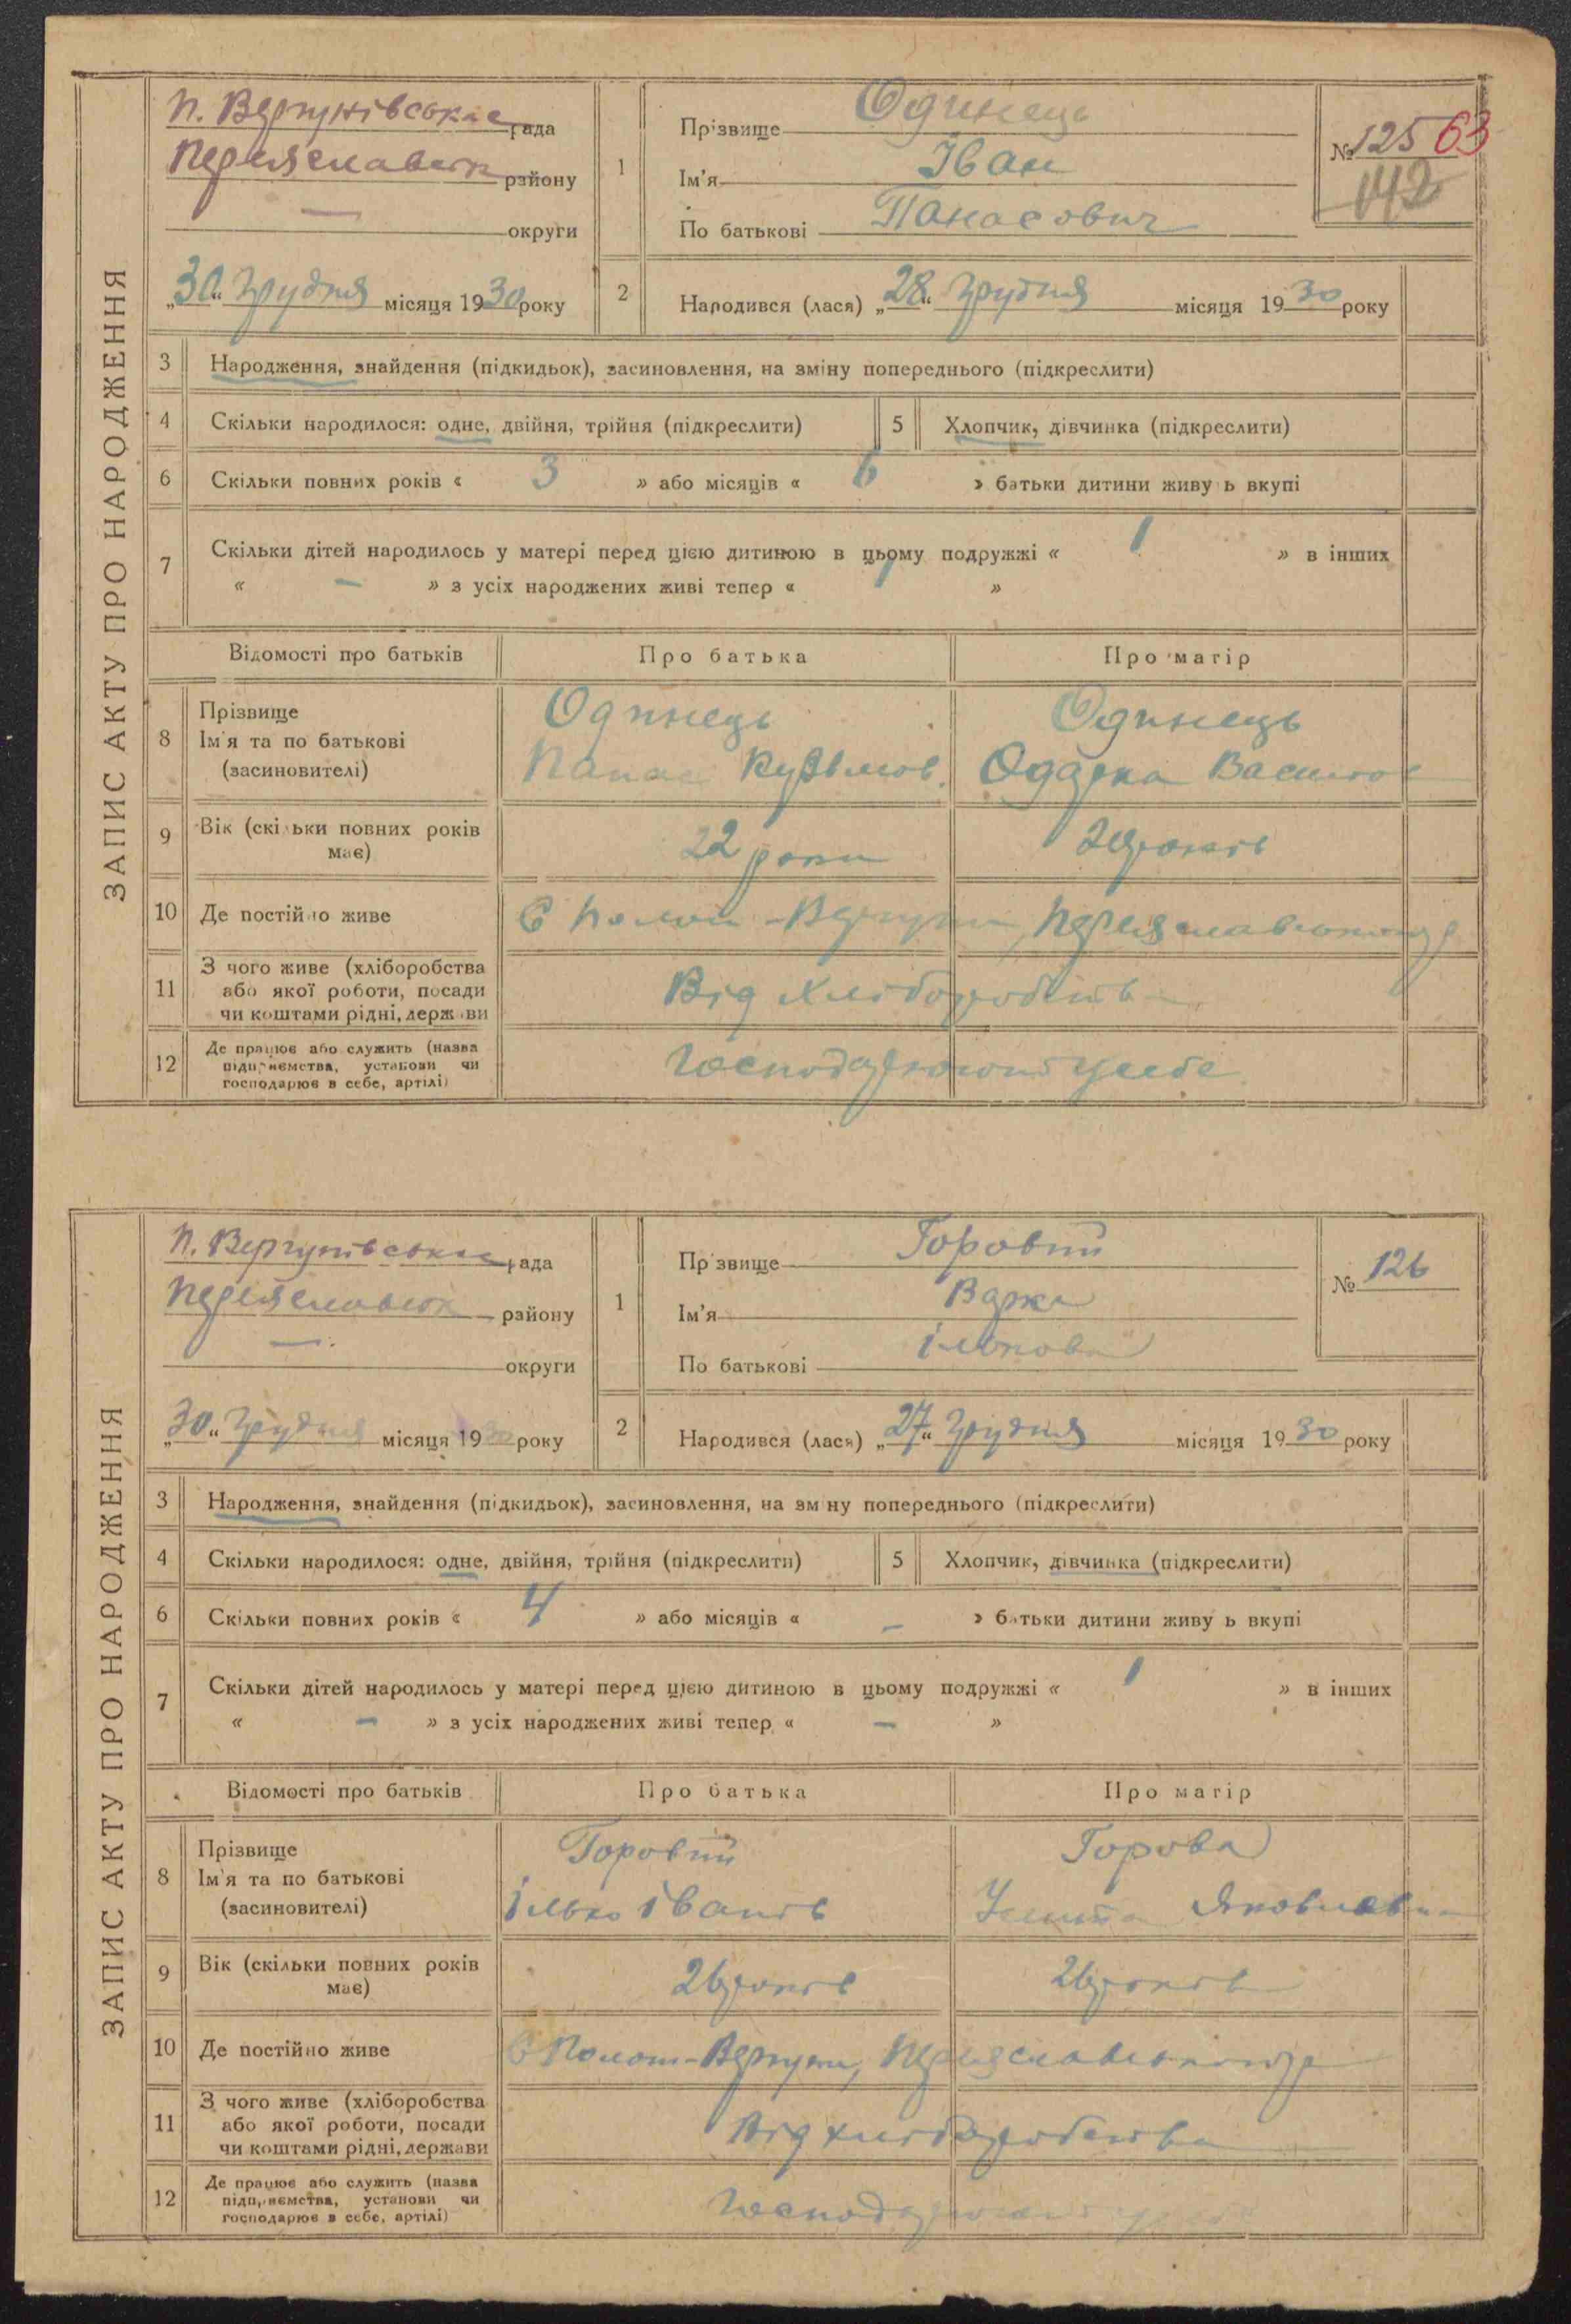 ЗАПИС АКТУ ПРО НАРОДЖЕННЯ
П. Вергунівська рада
Переяславськ району
— округи
„30“ Грудня місяця 1930 року
1
Прізвище Одинець
Ім'я Іван
По батькові Панасович
№ 125 63
142
2
Народився (лася) „28“ Грудня місяця 1930 року
3 Народження, знайдення (підкидьок), засиновлення, на зміну попереднього (підкреслити)
4 Скільки народилося: одне, двійня, трійня (підкреслити) 5 Хлопчик, дівчинка (підкреслити)
6 Скільки повних років « 3 » або місяців « 6 » батьки дитини живуть вкупі
7 Скільки дітей народилось у матері перед цією дитиною в цьому подружжі « 1 » в інших
« – » з усіх народжених живі тепер « 1 »
Відомості про батьків Про батька Про матір
8 Прізвище
Ім'я та по батькові
(засиновителі)
Одинець
Панас Кузьмов.
Одинець
Одарка Василів
9 Вік (скільки повних років
має)
22 роки
років
10 Де постійно живе
с Полом-Вергуни, Переяславського р
11 З чого живе (хліборобства
або якої роботи, посади
чи коштами рідні, держави
Від хліборобства
12 Де працює або служить (назва
підприємства, установи чи
господарює в себе, артілі)
Господарюють у себе
ЗАПИС АКТУ ПРО НАРОДЖЕННЯ
П. Вергунівська рада
Переяславськ району
— округи
„30“ Грудня місяця 1930 року
1
Прізвище Горовий
Ім'я Варка
По батькові Ільківна
№ 126
2
Народився (лася) „27“ Грудня місяця 1930 року
3 Народження, знайдення (підкидьок), засиновлення, на зміну попереднього (підкреслити)
4 Скільки народилося: одне, двійня, трійня (підкреслити) 5 Хлопчик, дівчинка (підкреслити)
6 Скільки повних років « 4 » або місяців « – » батьки дитини живуть вкупі
7 Скільки дітей народилось у матері перед цією дитиною в цьому подружжі « 1 » в інших
« – » з усіх народжених живі тепер « – »
Відомості про батьків Про батька Про матір
8 Прізвище
Ім'я та по батькові
(засиновителі)
Горовий
Ілько Іванів
Горова
Яковлевна
9 Вік (скільки повних років
має)
26 років
26 років
10 Де постійно живе
с Полом-Вергуни, Переяславського р
11 З чого живе (хліборобства
або якої роботи, посади
чи коштами рідні, держави
Від хліборобства
12 Де працює або служить (назва
підприємства, установи чи
господарює в себе, артілі)
Господарюють у себе